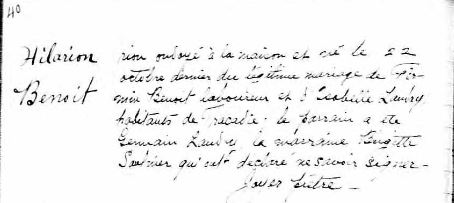 40
Hilarion
Benoit
rion ondoyé à la maison et né le 22
octobre dernier du légitime mariage de Fir-
min Benoit laboureur et d'Isabelle Landry
habitants de le parrain a été
Germain Landry la marraine Brigitte
qui ont déclaré ne savoir signer -
prêtre -